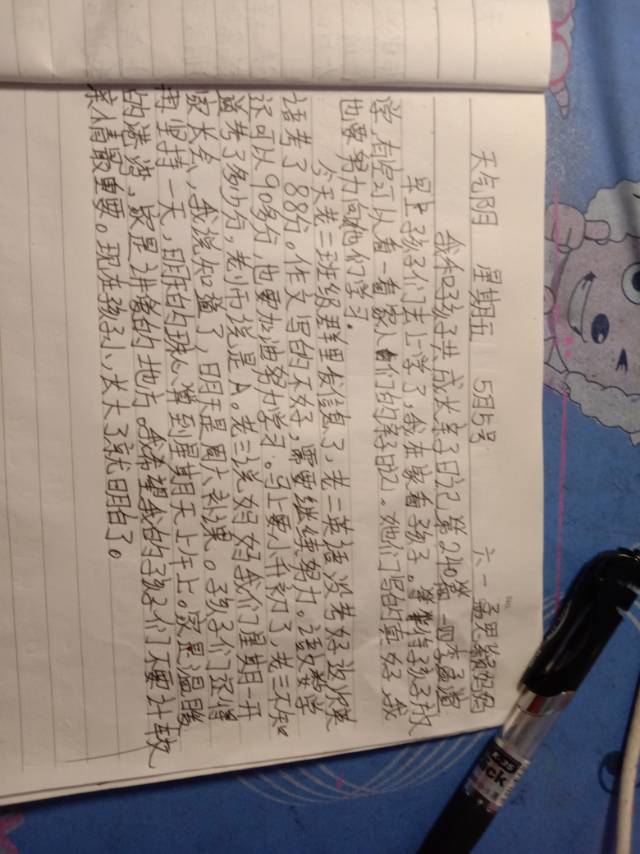 天气阴 星期五 5月5号 六一孟思颖妈妈
我和孩子共成长亲子日记第240篇 四李孟滔
早上孩子们去上学了，我在家看孩子。等孩子放
学，有空可以看一看家人们的好日记。她们写的真好，我
也要努力向她们学习。
今天老二班级群里发信息了，老二英语没考好这次英
语考了88分。作文写的不好，需要继续努力。语文数学
还可以90多分，也要加油努力学习。马上要小升初了，老三不知
道考了多少分，老师说是A。老三说妈妈我们星期一开
家长会，我说知道了，明天是周六补课。孩子们还得
再坚持一天，明的 算到星期天上午上。家是温暖
的港湾，家是讲爱的地方。我希望我的孩子们不要计较
亲情最重要。现在孩子小，长大了就明白了。